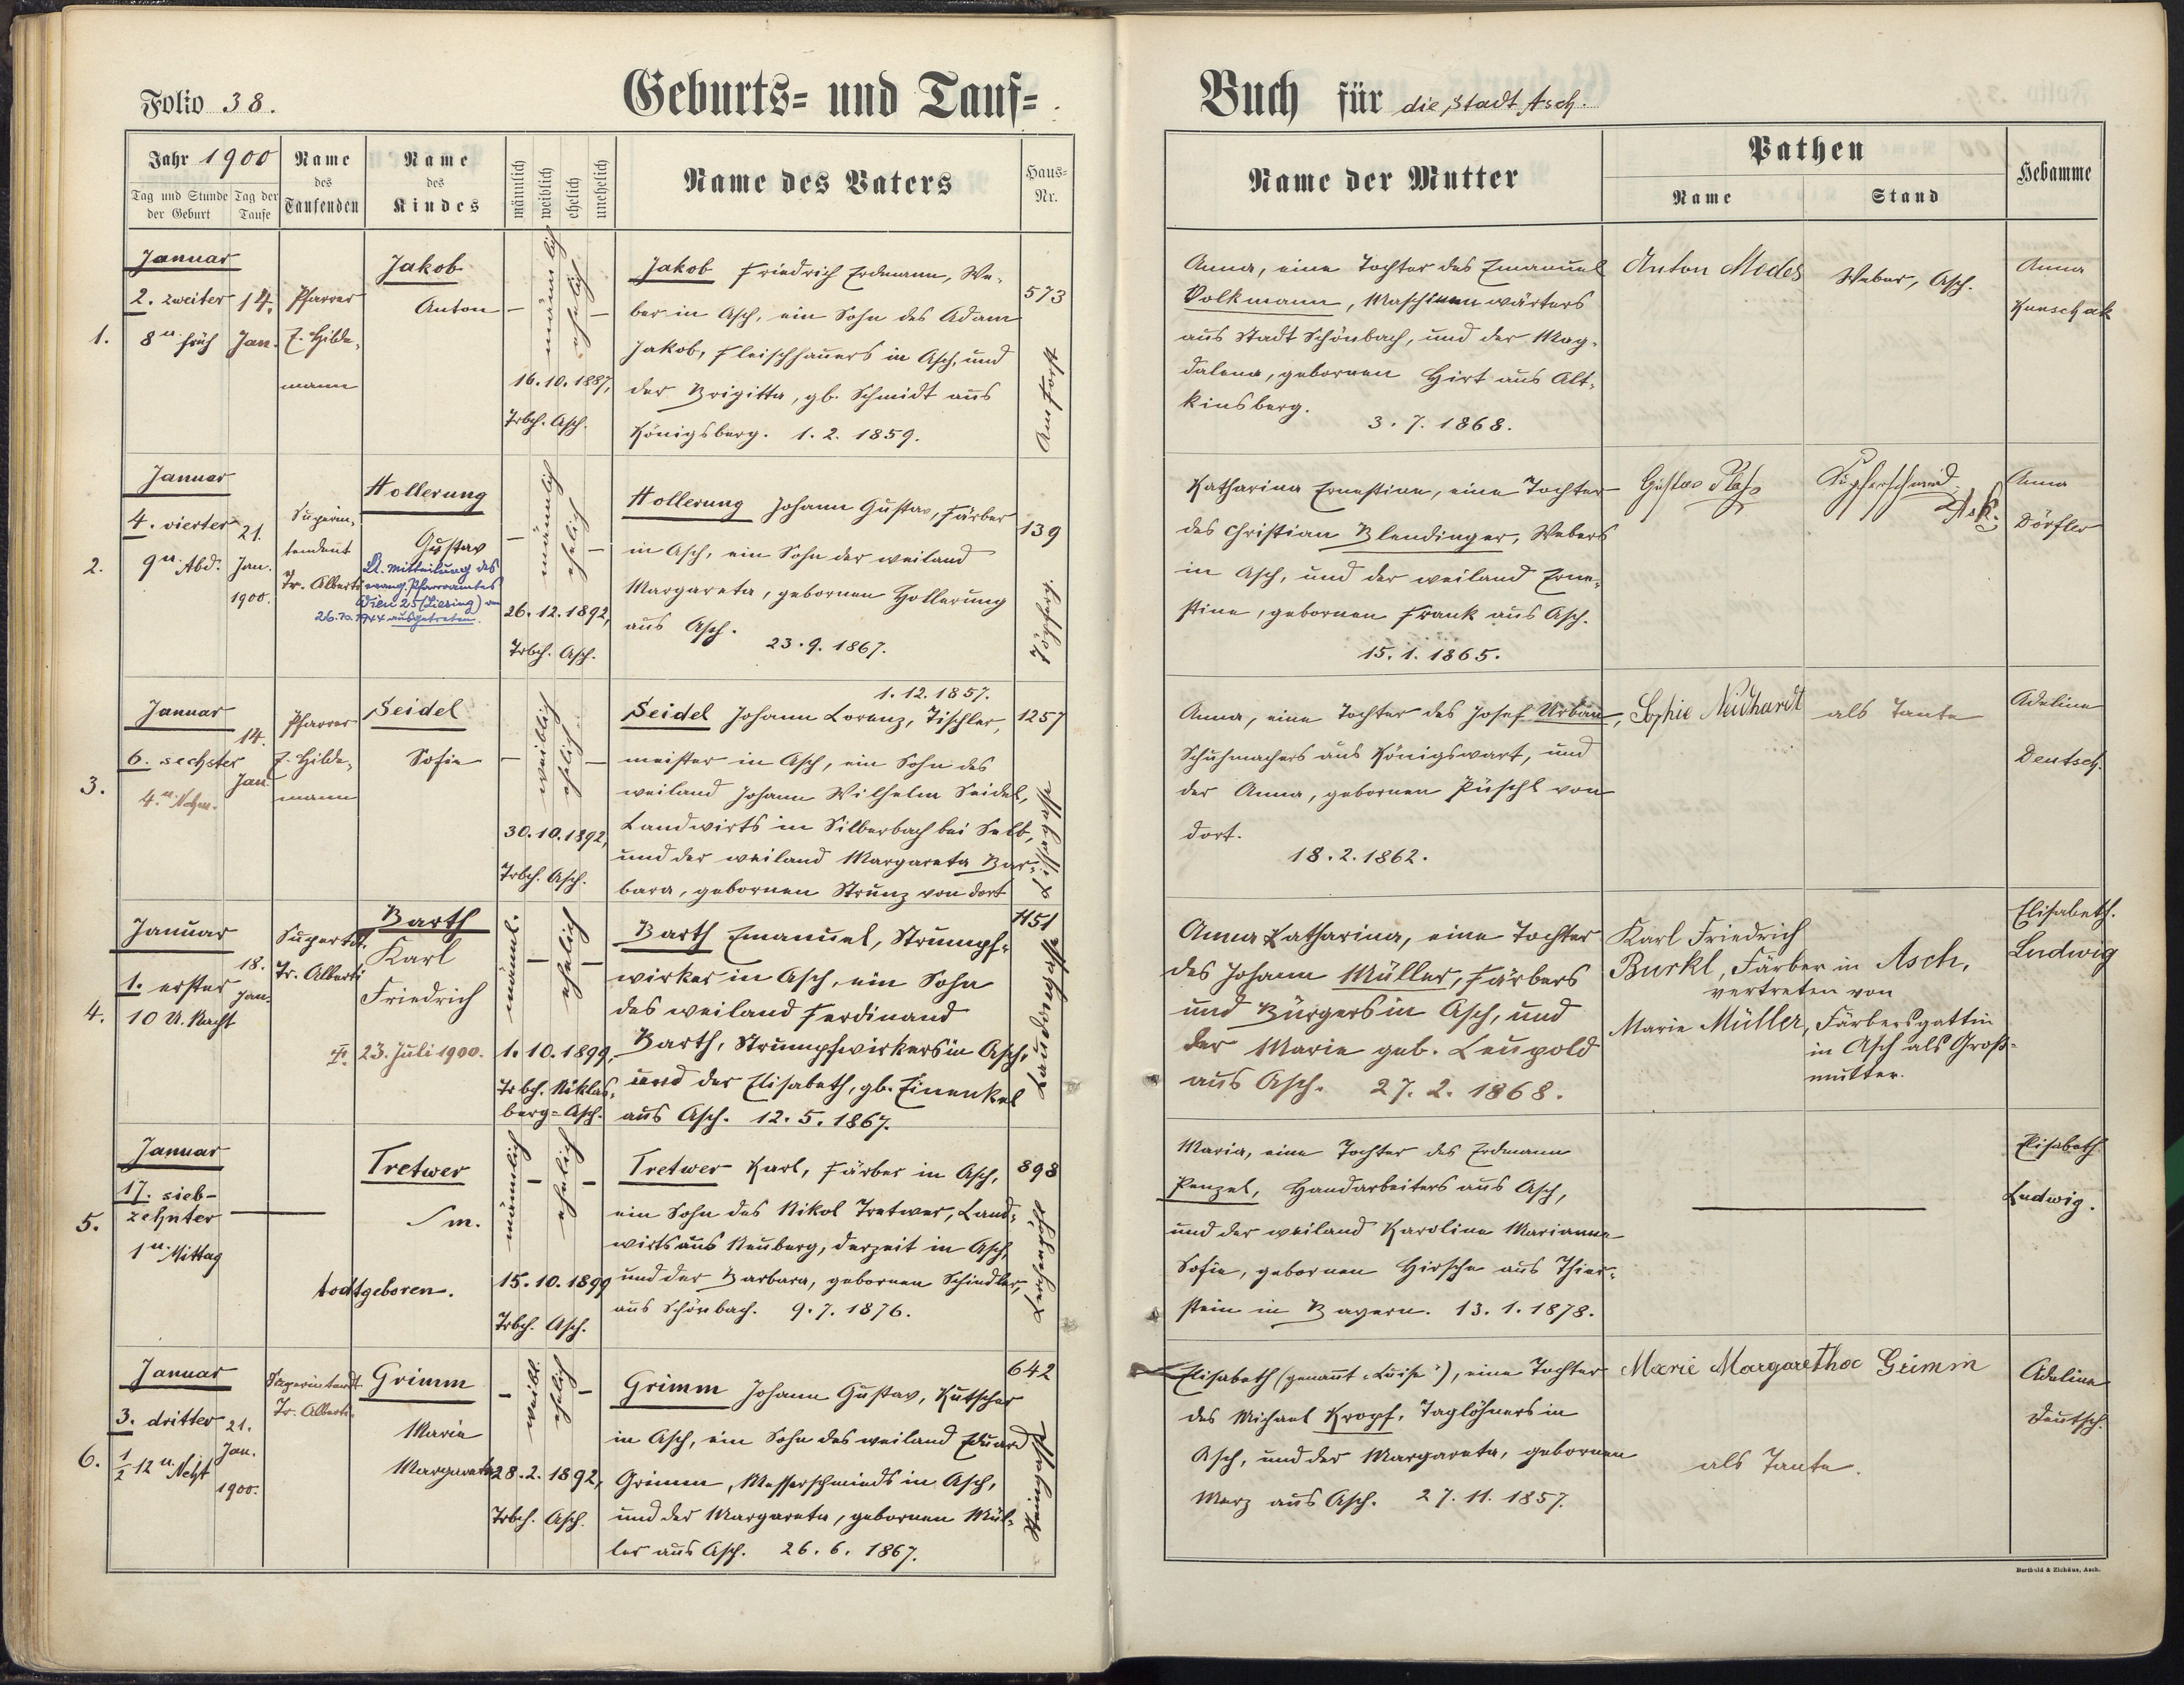 Folio 38.
Geburts= und Tauf=
Jahr 1900
Tag und Stunde der Geburt
Tag der Taufe
Name des Taufenden
Name des Kindes
männlich
weiblich
ehelich
unehelich
Name des Vaters
Haus=Nr.
1.
Januar
2. zweiter
8 u. früh
14.
Jan.
Pfarrer
E. Hilde-
mann
Jakob
Anton
männlich
ehelich
16.10.1887,
Trbch. Asch.
Jakob Friedrich Erdmann, We-
ber in Asch, ein Sohn des Adam
Jakob, Fleischhauers in Asch, und
der Brigitta, gb. Schmidt aus
Königsberg. 1.2.1859.
573
Am Forst
2.
Januar
4. vierter
9 u. Abd.
21.
Jan.
1900.
Superin-
tendent
Tr. Alberti
Hollerung
Gustav
Lt. Mitteilung des
evang. Pfarramtes
Wien 25 (Liesing) v.
26.10.1944 ausgetreten.
männlich
ehelich
26.12.1892,
Trbch. Asch.
Hollerung Johann Gustav, Färber
in Asch, ein Sohn der weiland
Margareta, gebornen Hollerung
aus Asch.
23.9.1867.
139
Töpferg.
3.
Januar
6. sechster
4. u. Nchm.
14.
Jan.
Pfarrer
E. Hilde-
mann
Seidel
Sofie
weiblich
ehelich
30.10.1892,
Trbch. Asch.
1.12.1857.
Seidel Johann Lorenz, Tischler-
meister in Asch, ein Sohn des
weiland Johann Wilhelm Seidel,
Landwirts in Silberbach bei Selb,
und der weiland Margareta Bar-
bara, gebornen Strunz von dort
1257
Lissagasse
4.
Januar
1. erster
10 U. Nacht
18.
Jan.
Supertdt.
Tr. Alberti
Barth
Karl
Friedrich
23. Juli 1900.
männl.
ehelich
1.10.1899,
Trbch. Niklas-
berg=Asch.
Barth Emanuel, Strumpf-
wirker in Asch, ein Sohn
des weiland Ferdinand
Barth, Strumpfwirkers in Asch,
und der Elisabeth, gb. Einenkel
aus Asch. 12.5.1867.
1151
Laudongasse
5.
Januar
17. sieb-
zehnter
1 u. Mittag
Tretwer
S m.
todtgeboren.
männlich
ehelich
15.10.1899
Trbch. Asch.
Tretwer Karl, Färber in Asch,
ein Sohn des Nikol Tretwer, Land-
wirts aus Neuberg, derzeit in Asch,
und der Barbara, gebornen Schindler,
aus Schönbach. 9.7.1876.
898
6.
Januar
3. dritter
½ 12 u. Ncht
21.
Jan.
1900.
Superintendt.
Tr. Alberti.
Grimm
Maria
Margareta
weibl.
ehelich
28.2.1892,
Trbch. Asch.
Grimm Johann Gustav, Kutscher
in Asch, ein Sohn des weiland Eduard
Grimm, Messerschmieds in Asch,
und der Margareta, gebornen Mül-
ler aus Asch. 26.6.1867.
642
Steingasse
Buch für die Stadt Asch.
Name der Mutter
Pathen
Name
Stand
Hebamme
Anna, eine Tochter des Emanuel
Volkmann, Maschinenwärters
aus Stadt Schönbach, und der Mag-
dalena, gebornen Hirt aus Alt-
kinsberg.
3.7.1868.
Anton Modes
Weber, Asch.
Anna
Kunschak
Katharina Ernestine, eine Tochter
des Christian Blendinger, Webers
in Asch, und der weiland Erne-
stine, gebornen Frank aus Asch.
15.1.1865.
Gustav
Kupferschmied
Anna
Dörfler
Anna, eine Tochter des Josef Urban,
Schuhmachers aus Königswart, und
der Anna, gebornen Püschl von
dort.
18.2.1862.
Sophie Neidhardt
als Tante
Adeline
Deutsch.
Anna Katharina, eine Tochter
des Johann Müller, Färbers
und Bürgers in Asch, und
der Marie geb. Leupold
aus Asch. 27.2.1868.
Karl Friedrich
Burkl, Färber in Asch,
vertreten von
Marie Müller, Färbersgattin
in Asch als Groß-
mutter.
Elisabeth.
Ludwig
Maria, eine Tochter des Erdmann
Penzel, Handarbeiters aus Asch,
und der weiland Karoline Marianne
Sofie, gebornen Hirsche aus Thier-
stein in Bayern. 13.1.1878.
Elisabeth.
Ludwig.
Elisabeth (genannt „Luise"), eine Tochter
des Michael Kropf, Taglöhners in
Asch, und der Margareta, gebornen
Merz aus Asch. 27.11.1857.
Marie Margarethae Grimm
als Tante.
Adeline
Deutsch.
Berthold & Zichäus, Asch.